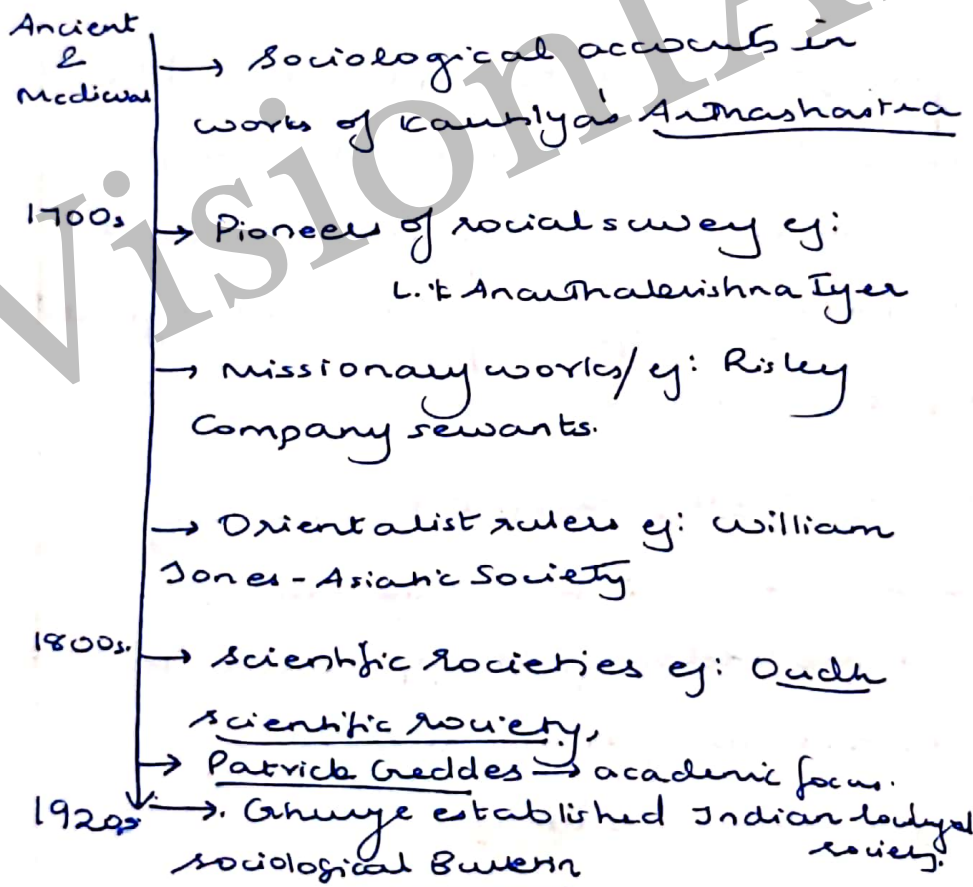 Ancient
&
Medieval
→ Sociological accounts in
works of Kautilya's Arthashastra
1700s → Pioneers of social survey eg:
L.K Ananthakrishna Iyer
→ Missionary works/ eg: Risley
Company servants.
→ Orientalist rulers eg: William
Jones - Asiatic Society
1800s. → scientific societies eg: Oudh
scientific society,
→ Patrick Geddes → academic focus.
1920s → Ghurye established Indian
society.
sociological Bulletin
VisionIA